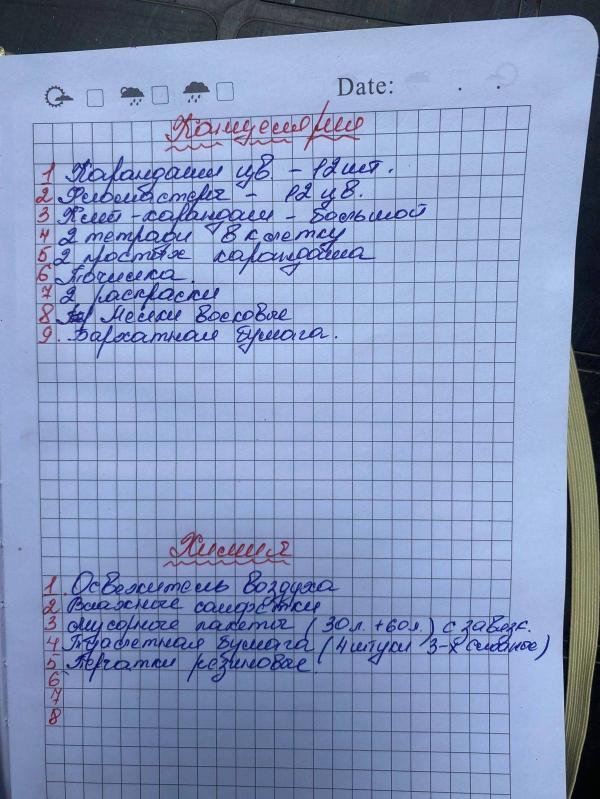 Date:
Канцелярия
1 Карандаши цв. - 12 шт.
2 Фломастеры - 12 цв.
3 Клей-карандаш - большой
4 2 тетради в клетку
5 2 простых карандаша
6 Точилка
7 2 раскраски
8 Мелки восковые
9. Бархатная бумага.
Химия
1. Освежитель воздуха
2. Влажные салфетки
3 Мусорные пакеты (30л. + 60л.) с завязк.
4 Туалетная бумага (4 штуки 3-х слойные)
5 Перчатки резиновые
6
7
8